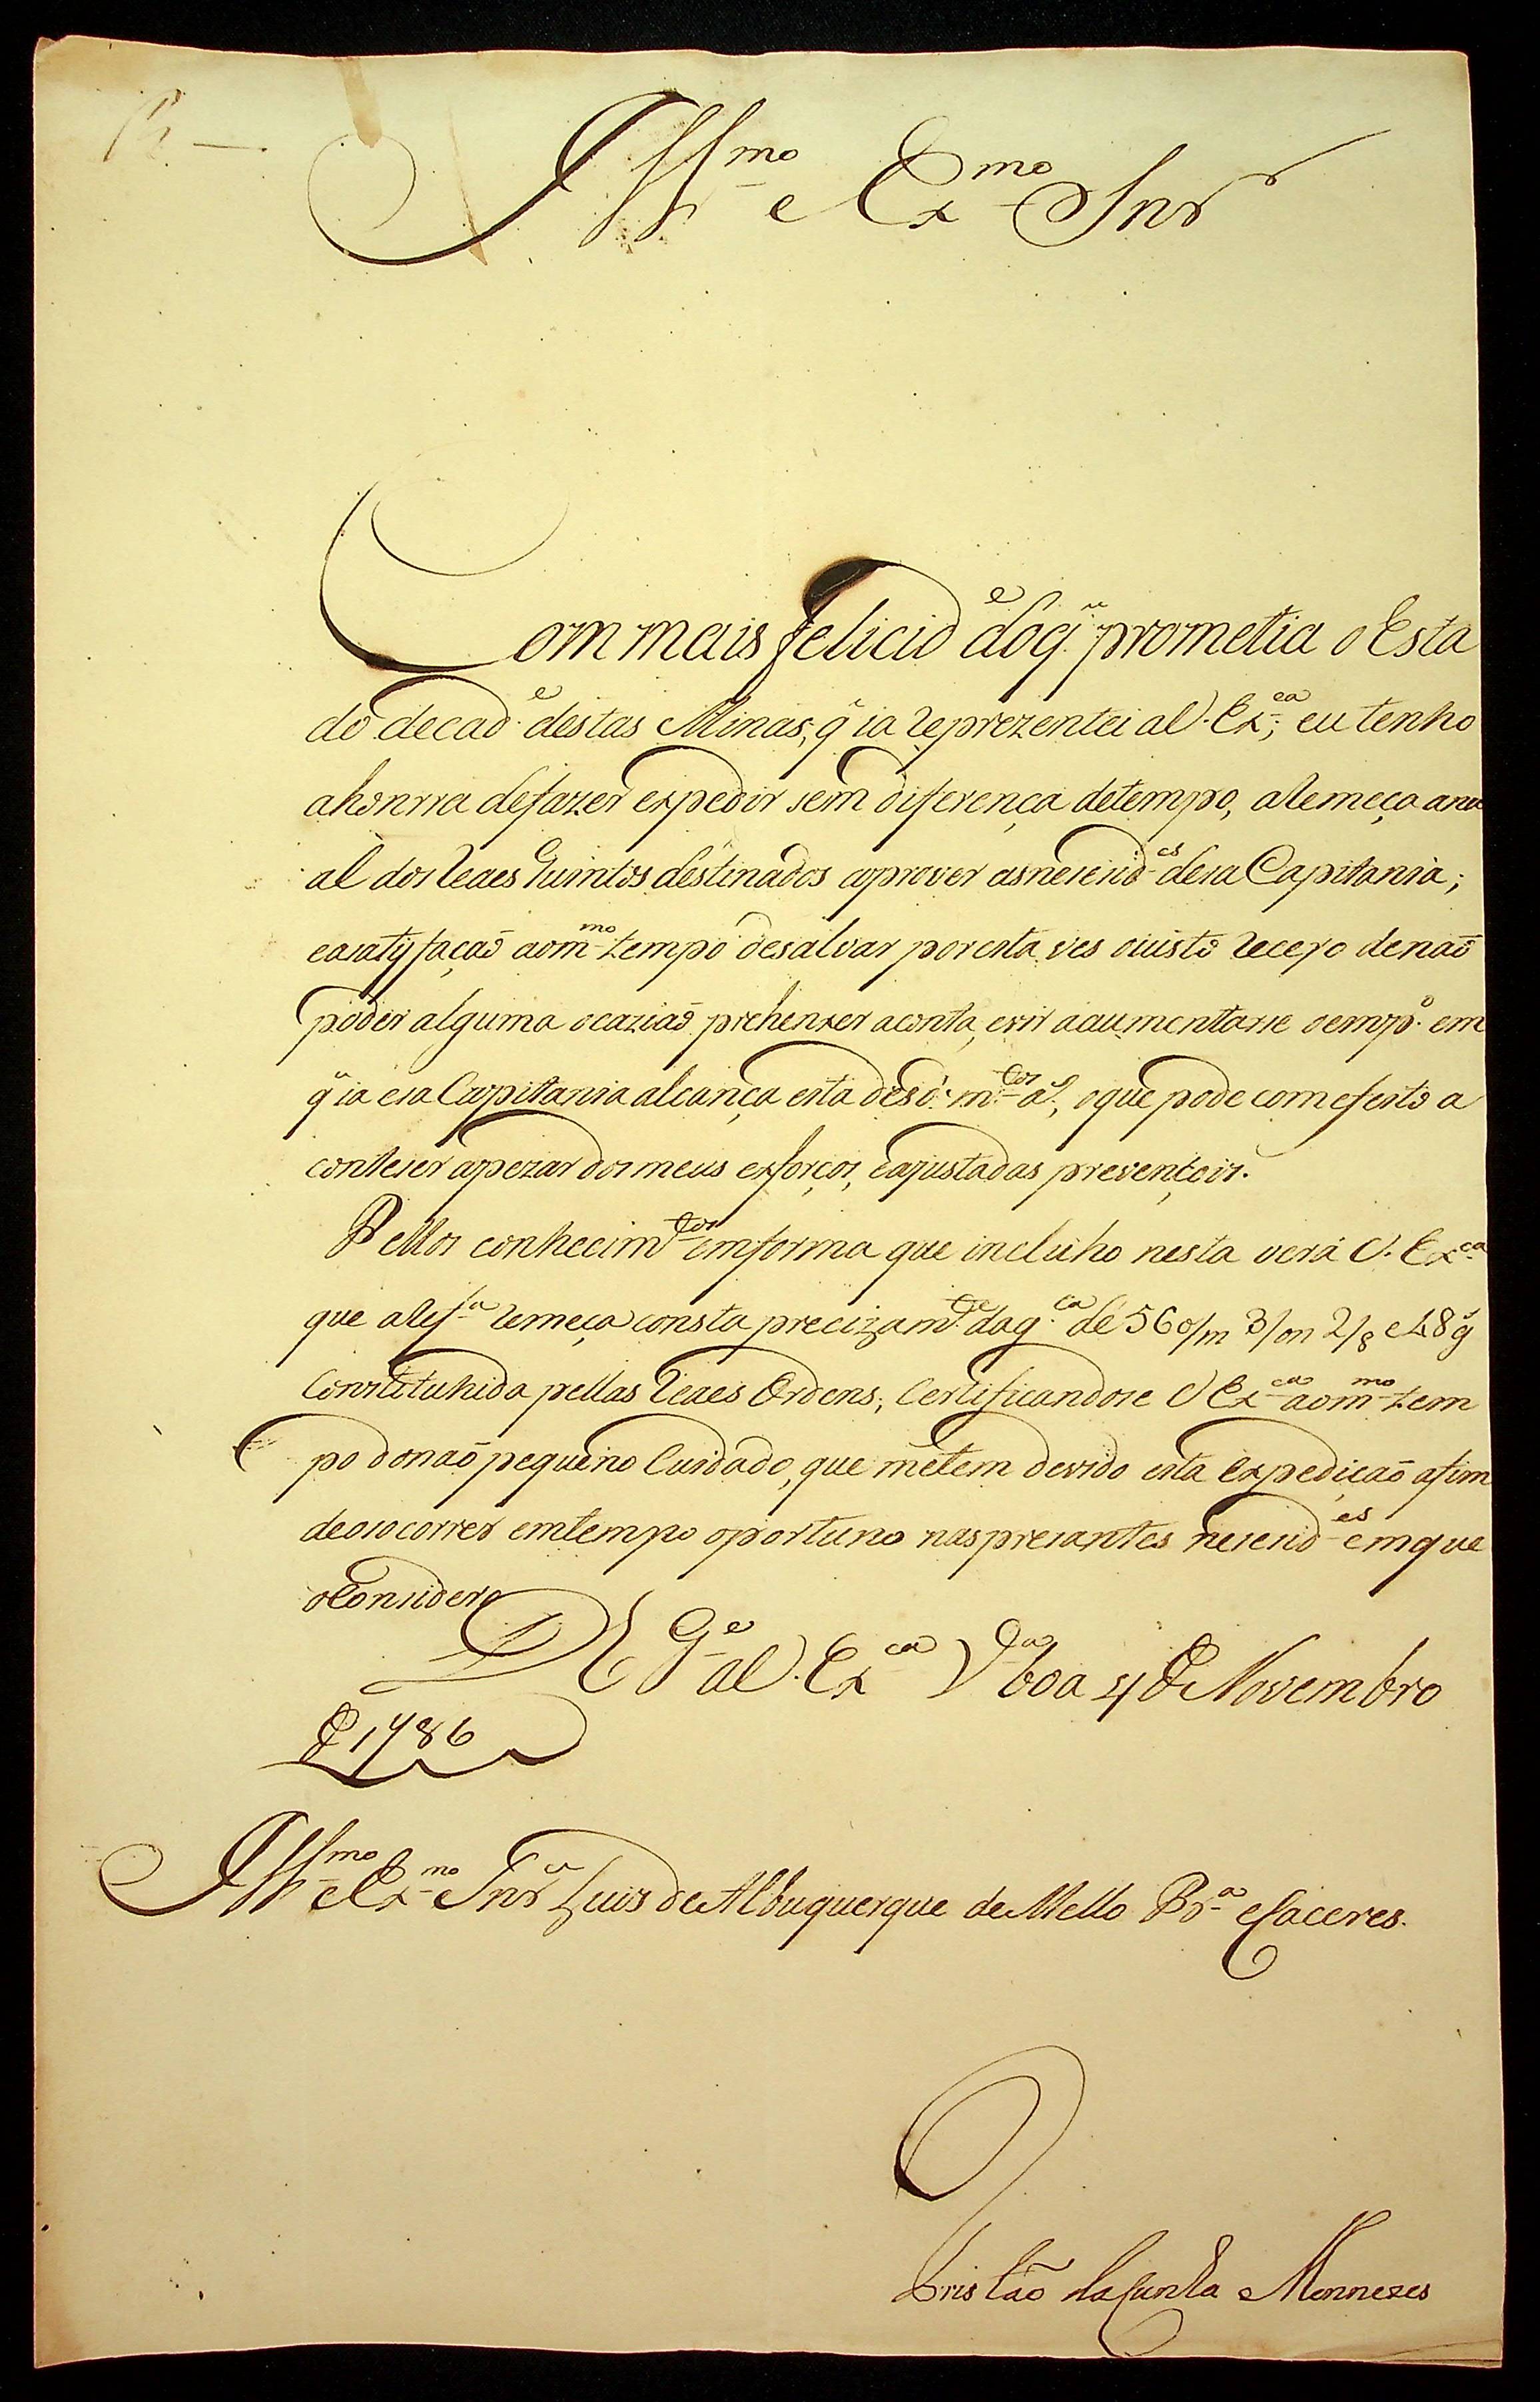 Jll^mo e Ex^mo Snr
Com mais felicid^e doq̃ prometia o Esta
do decad^e destas Minas, q̃ ia reprezentei aV. Ex^ca; eu tenho
ahonrra defazer expedir sem diferença detempo, aRemeça anu
al dos Reaes Quintos destinados aprover asnesesid^es desa Capitania;
easatisfação aom^mo tempo desalvar poresta ves oiusto Receyo denaõ
poder alguma ocaziaõ prehenxer aconta, evir aaumentarse oemp^o em
q̃ ia esa Capitania alcança esta de m^tos a^s, oque pode comefeito a
conteser apezar dos meus esforços, eajustadas prevençois.
Pellos conhecim^tos emforma que incluho nesta verá V. Ex^ca
que aRef^a Remeça consta precizam^te daq^ta de 56 o/m 3/on 2/8 e 48 g^s
Constituhida pellas Reaes Ordens; Certificandose V Ex^ca aom^mo tem
po donaõ pequeno Cuidado, que metem devido esta Expediçaõ afim
deosocorrer emtempo oportuno naspresantes nesesid^es emque
oConsidero
D^s G^e aV. Ex^ca V^a boa 4 de Novembro
de 1786
Jll^mo eEx^mo Snr Luis de Albuquerque de Mello Pr^a eCaceres.
Tristão daCunha e Mennezes